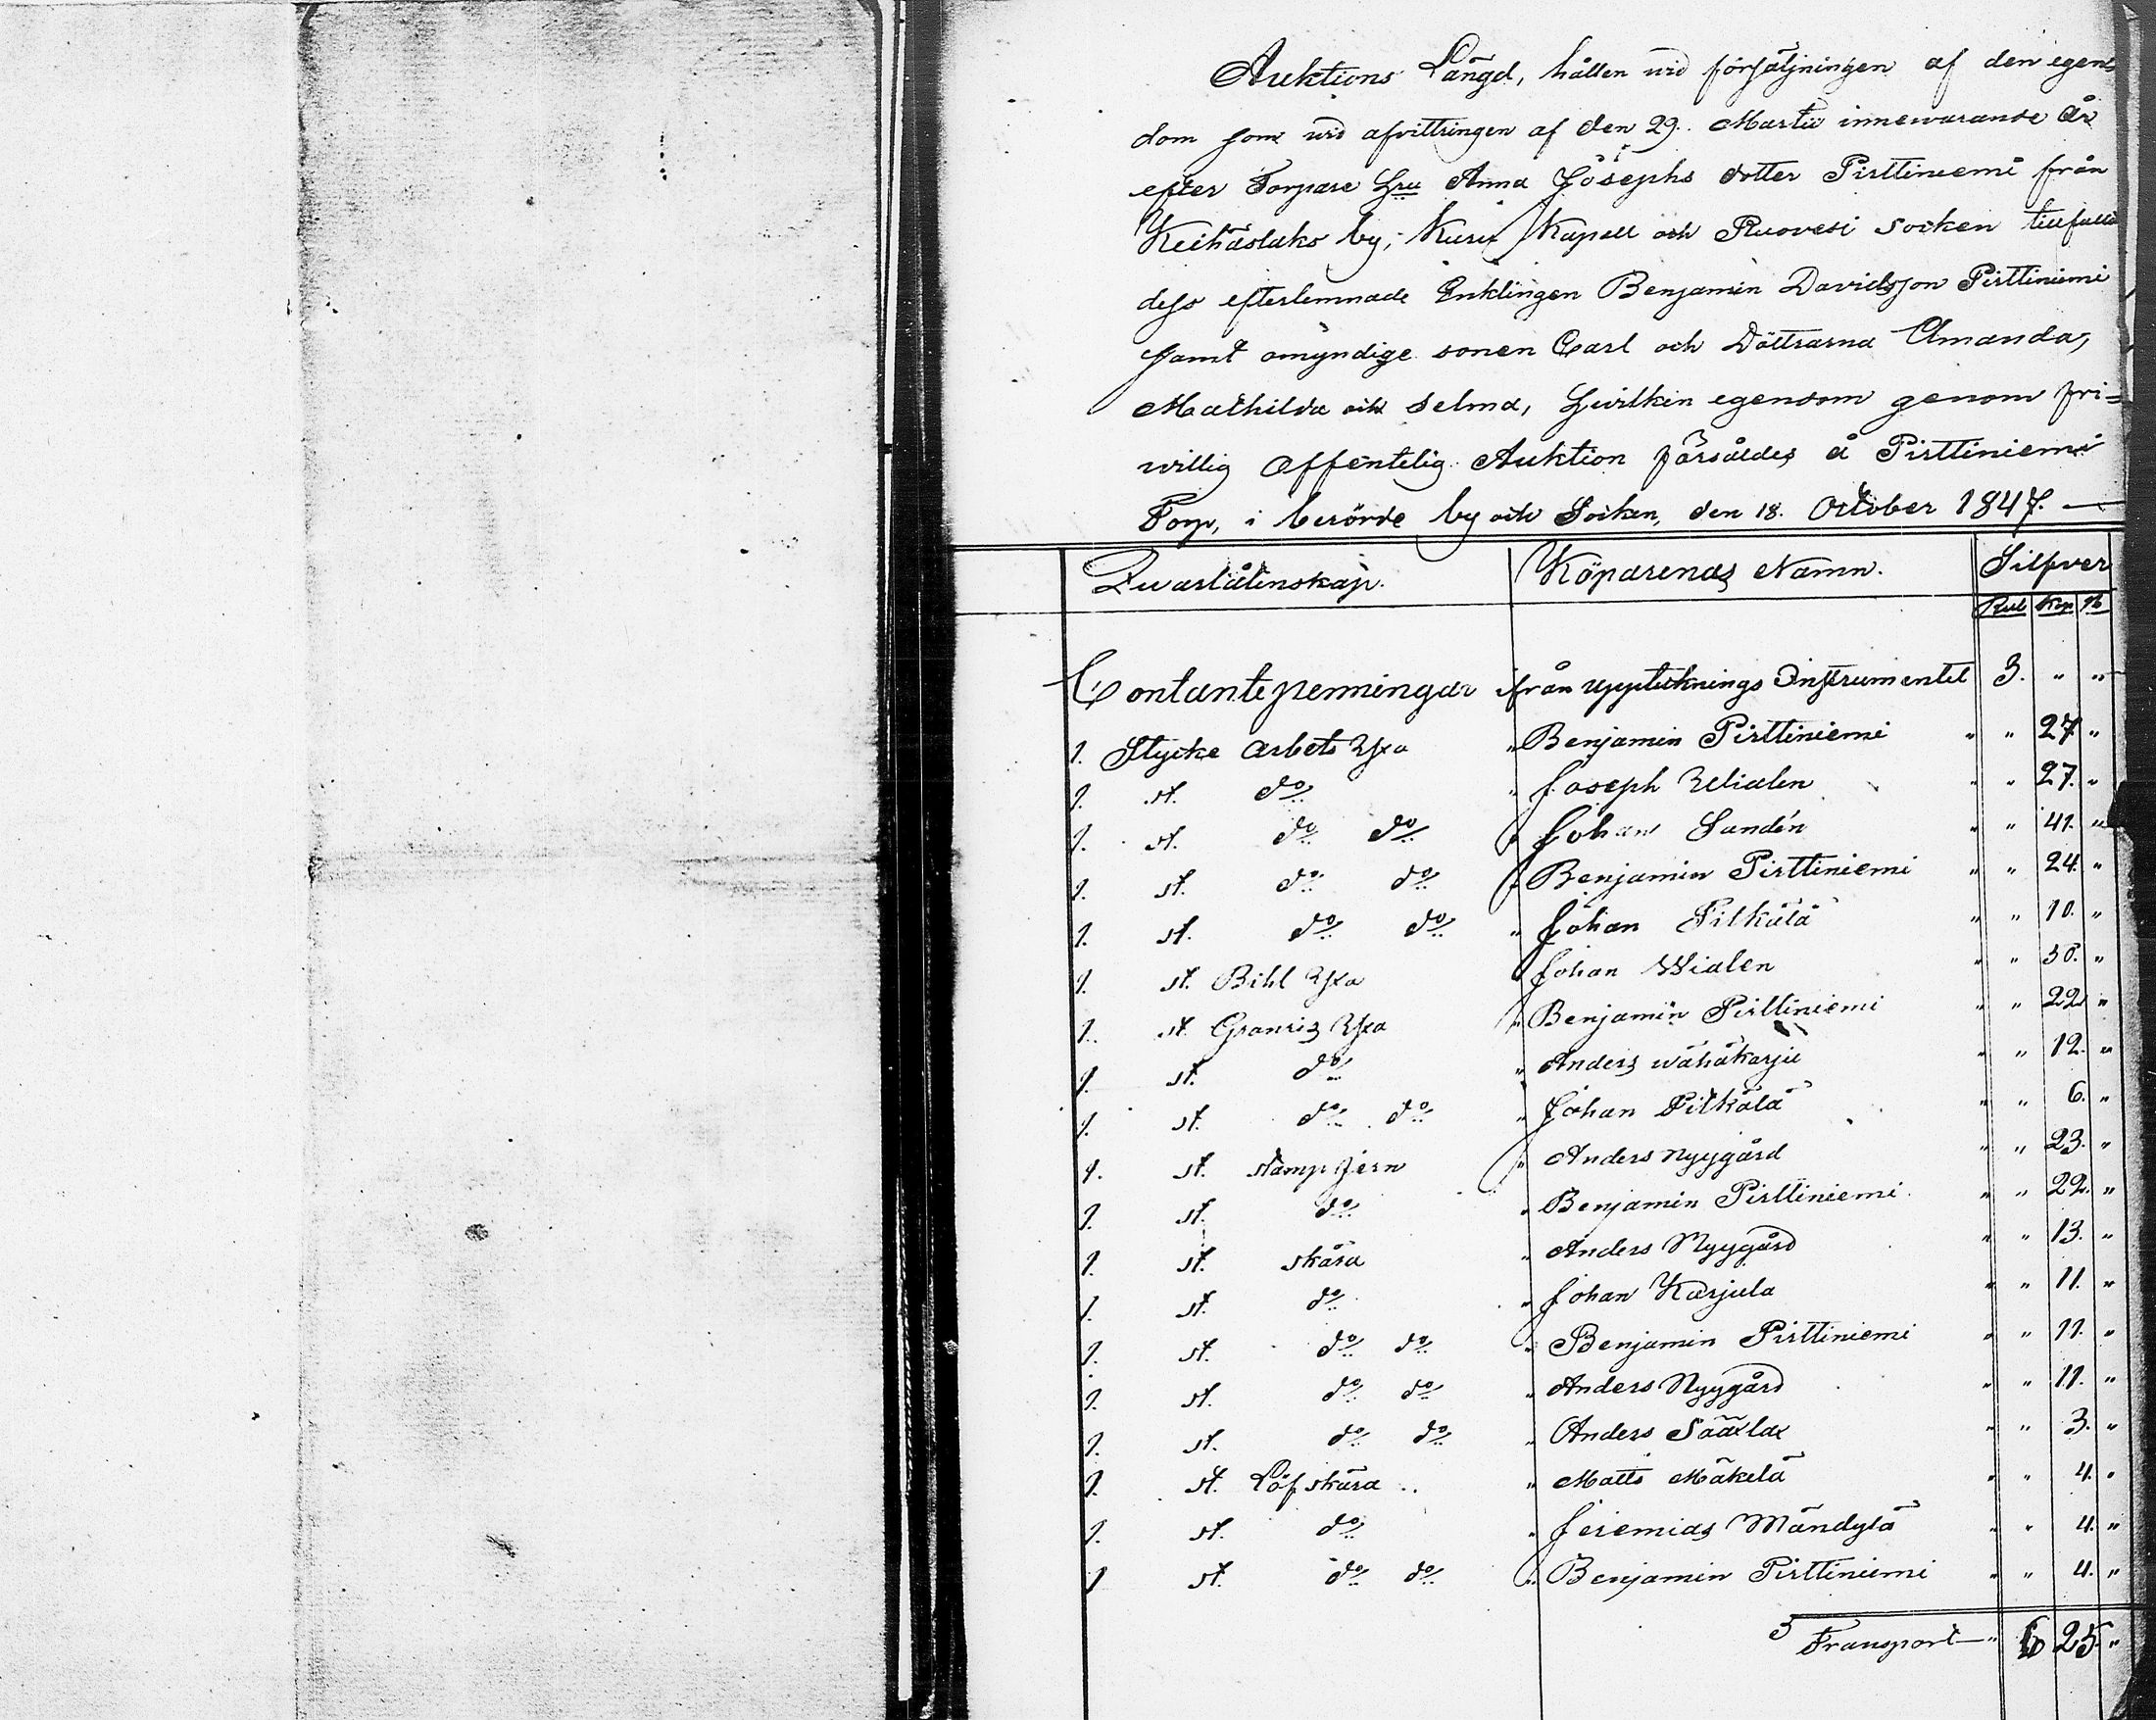 Auktions Längd, hållen wid försäljningen af den egen=
dom som wid afvittringen af den 29. Martii innewarande År
efter Torpare Hru Anna Josephs dotter Pirttiniemi från
Keihäslaks by, Kuru Kapell och Ruovesi Socken tillfallit
dess efterlemnade Enklingen Benjamin Davidsson Pirttiniemi
samt omyndige sonen Carl och Döttrarna Amanda,
Mathilda och Selma, Hvilken egendom genom fri=
willig Offentelig Auktion försåldes å Pirttiniemi
Torp, i berörde by och Socken, den 18. October 1847. —
Qvarlåtenskap. Köparenas Namn. Silfver
Rub Kop
Contantepenningar ifrån uppteknings Instrumentet 3. " "
1. Stycke Arbets Yxa " Benjamin Pirttiniemi " " 27. "
1. st. do " Joseph Wialen " " 27. "
1. st. do do " Johan Sandén " " 41. "
1. st. do do " Benjamin Pirttiniemi " " 24. "
1. st. do do " Johan Pitkälä " " 10. "
1. st. Bihl Yxa " Johan Wialen " " 30. "
1. st. Granris Yxa " Benjamin Pirttiniemi " " 22. "
1. st. do " Anders Wähäkarju " " 12. "
1. st. do do " Johan Pitkälä " " 6. "
1. st. stampjern " Anders Nyygård " " 23. "
1. st. do " Benjamin Pirttiniemi " " 22. "
1. st. skära " Anders Nyygård " " 13. "
1. st. do " Johan Karjula " " 11. "
1. st. do do " Benjamin Pirttiniemi " " 11. "
1. st. do do " Anders Nyygård " " 11. "
1. st. do do " Anders Sääxlax " " 3. "
1. st. Löf skära " Matts Mäkelä " " 4. "
1. st. do " Jeremias Mändylä " " 4. "
1 st. do do " Benjamin Pirttiniemi " " 4. "
Transport — " 6 25. "